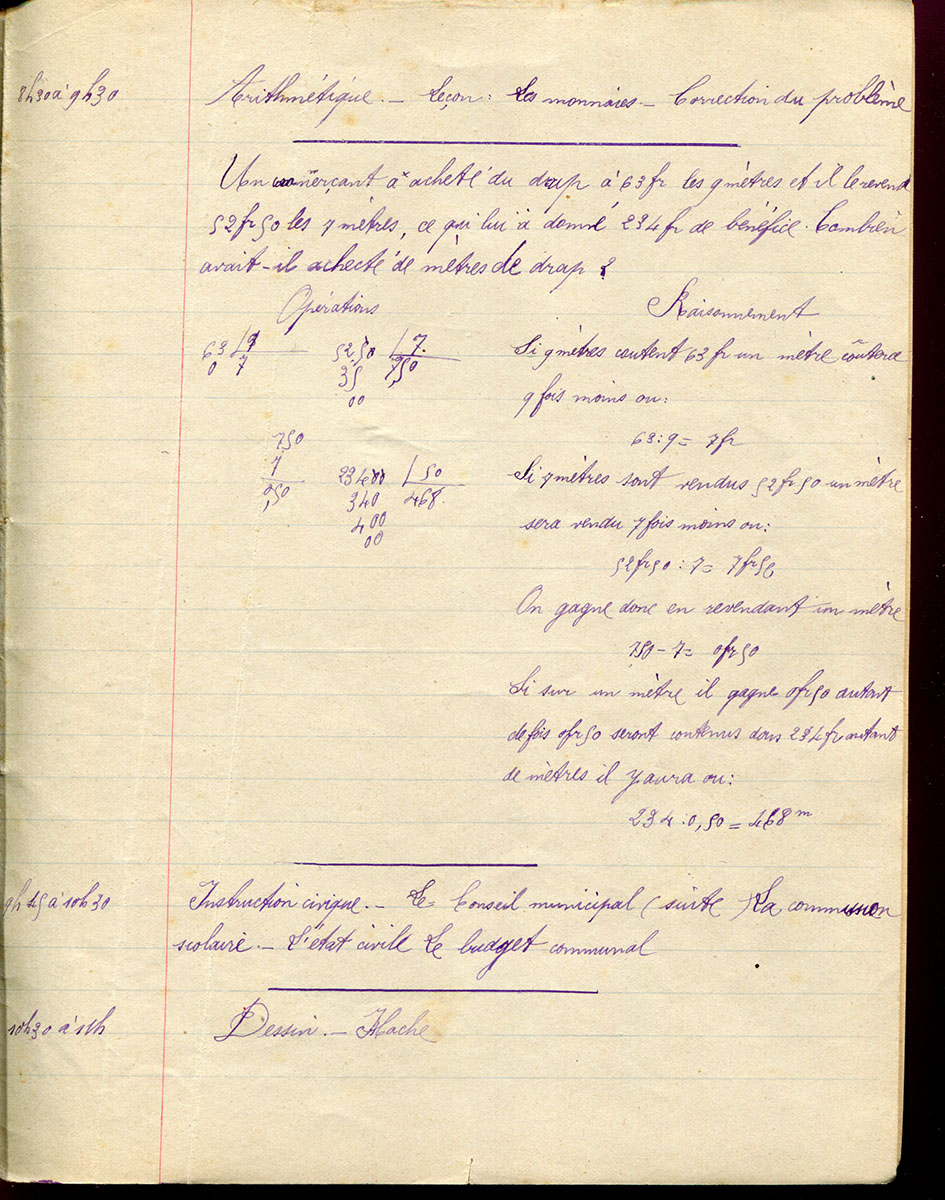 8h30 à 9h30
Arithmétique. — Leçon: Les monnaies — Correction du problème
Un commerçant a acheté du drap à 63 fr les 9 mètres et il le revend
52fr50 les 7 mètres, ce qui lui à donné 234 fr de bénéfice. Combien
avait-il achecté de mètres de drap ?
Opérations
63 | 9
0 7
52,50 | 7
35 7,50
00
7,50
7
0,50
23400 | 50
340 468
400
00
Raisonnement
Si 9 mètres coutent 63 fr un mètre coûtera
9 fois moins ou:
63 : 9 = 7fr
Si 7 mètres sont vendus 52fr50 un mètre
sera vendu 7 fois moins ou:
52fr50 : 7 = 7fr50
On gagne donc en revendant un mètre
7,50 - 7 = 0fr50
Si sur un mètre il gagne 0fr50 autant
de fois 0fr50 seront contenus dans 234 fr autant
de mètres il y aura ou:
234 : 0,50 = 468 m
9h45 à 10h30
Instruction civique. — Le Conseil municipal (suite) La commission
scolaire. — L'état civile Le budget communal
10h30 à 11h
Dessin. — Hache